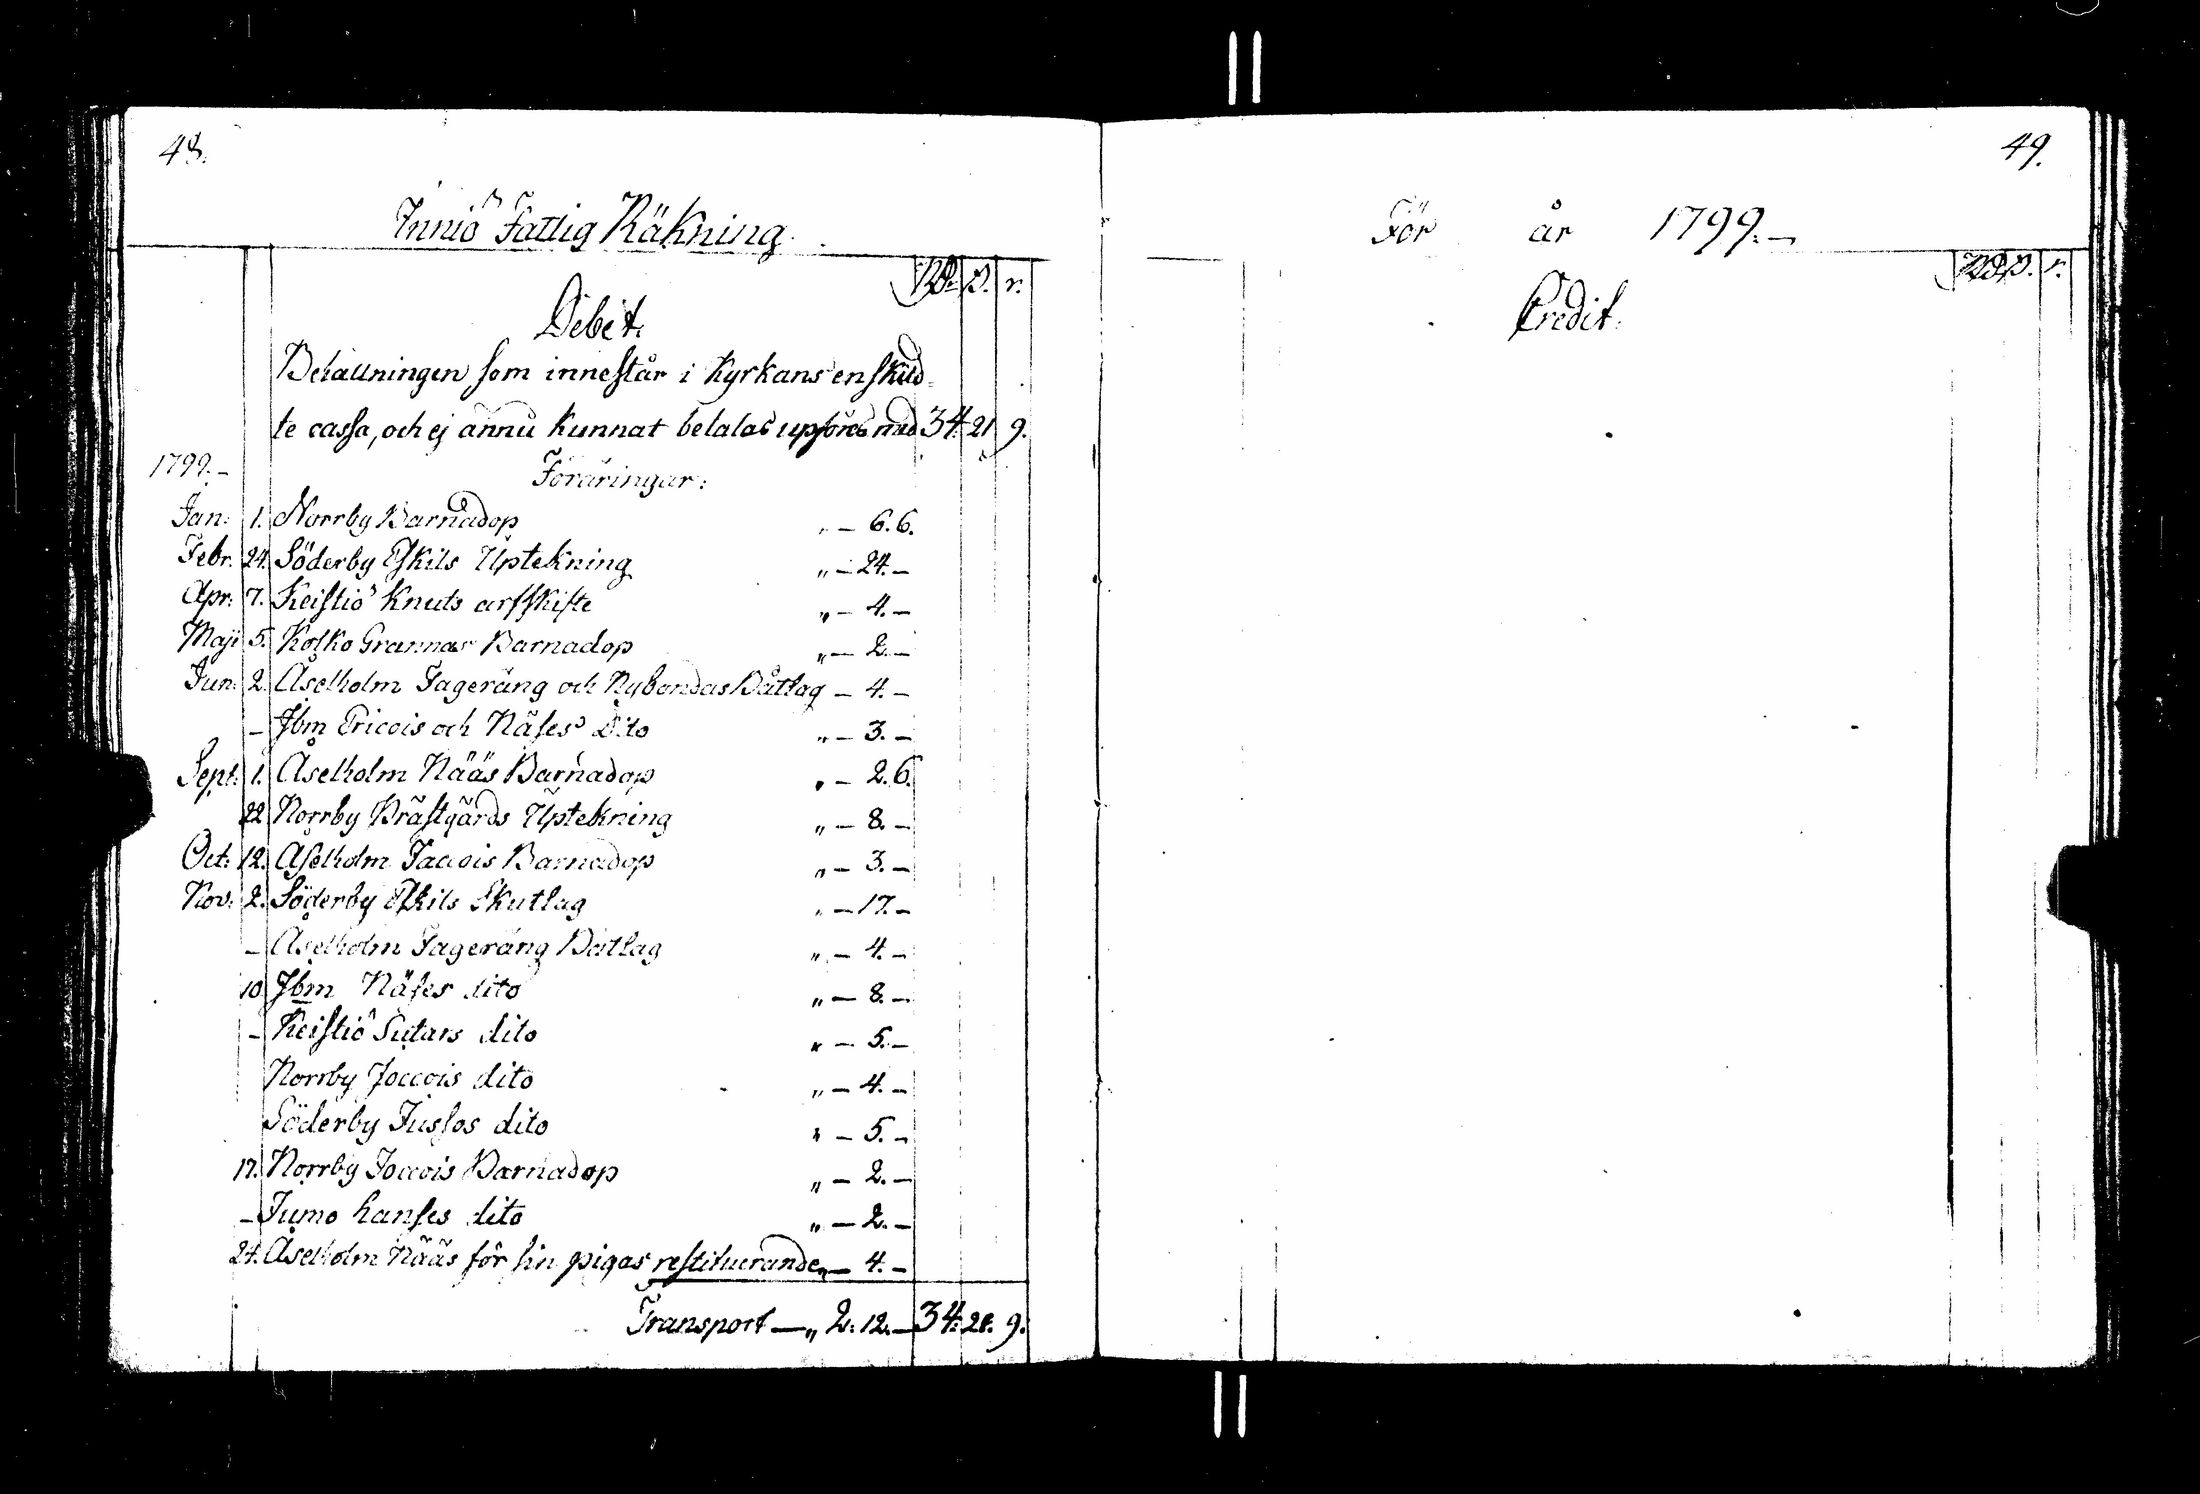 48.
Inniö Fattig Räkning
Rd. s. r.
Debet.
Behållningen som innestår i Kyrkans enskild-
te cassa, och ej ännu kunnat betalas upföres med 34. 21 9.
1799.-
Föräringar:
Jan: 1. Norrby Barnadop „ - 6. 6.
Febr. 24. Söderby Eskils Uptekning „ - 24. -
Apr: 7. Keistiö Knuts arfskifte „ - 4. -
Maji 5. Kolko Grannas Barnadop „ - 2. -
Jun: 2. Åselholm Fageräng och Nybondas Båtlag - 4. -
- Jbm Ericois och Näses Dito „ - 3. -
Sept: 1. Åselholm Nääs Barnadop „ - 2. 6.
22 Norrby Prästgårds Uptekning „ - 8. -
Oct: 12. Åselholm Jaccois Barnadop „ - 3. -
Nov: 2. Söderby Eskils Skutlag „ - 17. -
- Åselholm Fageräng Båtlag „ - 4. -
10 Jbm Näses dito „ - 8. -
- Keistiö Sutars dito „ - 5. -
Norrby Joccois dito „ - 4. -
Söderby Jussos dito „ - 5. -
17. Norrby Joccois Barnadop „ - 2. -
- Jumo hanses dito „ - 2. -
24. Åselholm Nääs för sin pigas restituerande „ - 4. -
Transport - „ 2. 12. - 34. 21. 9.
49.
För år 1799. -
Rd. s. r.
Credit.